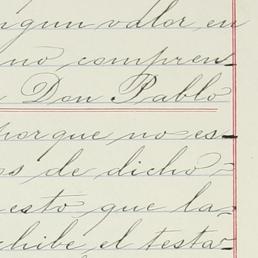 ngun valor en
no compren-
Don Pablo
porque no es-
os de dicho
esto que la-
chibe, el testa-